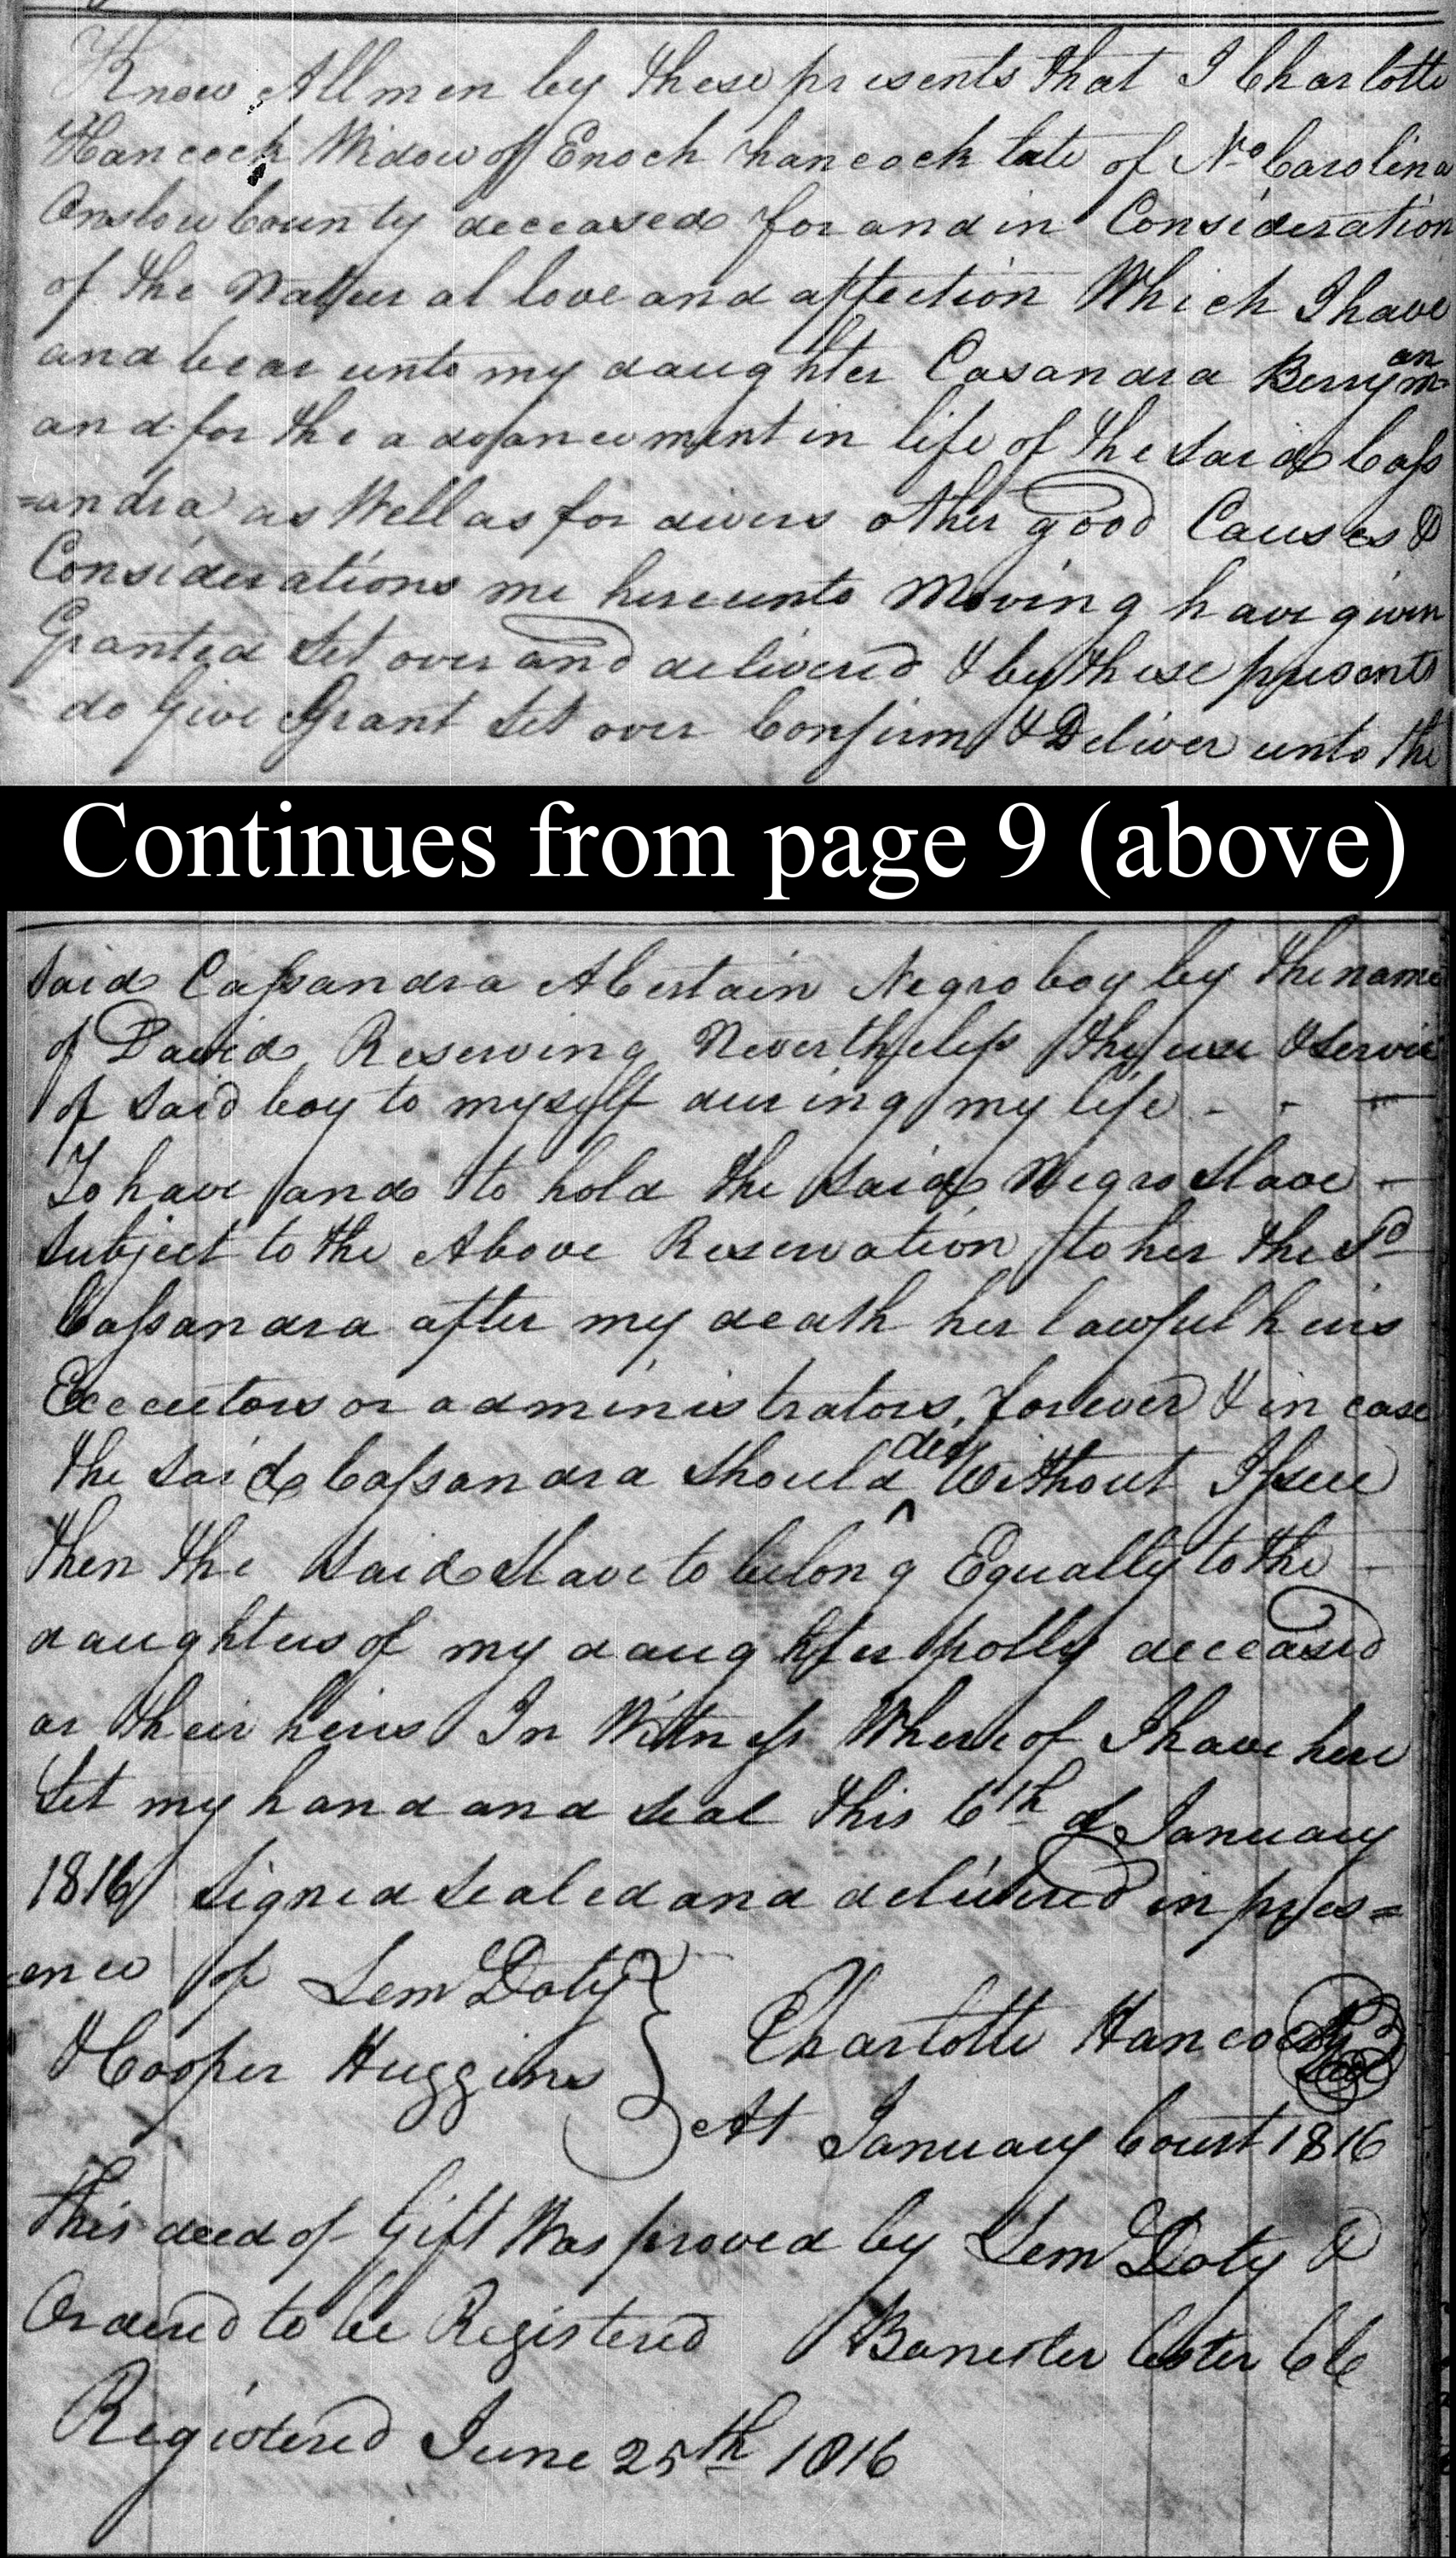 Know All men by these presents that I Charlotte
Hancock Widow of Enoch hancock late of No Carolina
Onslow County deceased for and in Consideration
of the Natteural love and affection Which I have
and bear unto my daughter Casandra Berryman
and for the advancement in life of the said Cass
=andra as Well as for divers other good Causes &
Considerations me hereunto Moving have given
Granted Set over and delivered & by these presents
do Give Grant Set over Confirm & Deliver unto the
Continues from page 9 (above)
Said Cassandra A Certain Negro boy by the name
of David Reserving Nevertheless the use & Servic
of Said boy to myself during my life - - -
To have and to hold the Said Negro Slave -
Subject to the Above Reservation to her the Sd
Cassandra after my death her lawful heirs
Executors or administrators, forever & in case
the Said Cassandra Should die Without Issue
then the Said Slave to belong Equally to the -
daughters of my daughter polly deceased
or their heirs In Witness Whereof I have here
Set my hand and Seal this 6th of January
1816 Signed Sealed and delivered in pres=
=ence of Lem Doty
& Cooper Huggins Charlotte Hancock Seal
At January Court 1816
This deed of Gift Was proved by Lem Doty &
Ordered to be Registered Banester Lester CC
Registered June 25th 1816